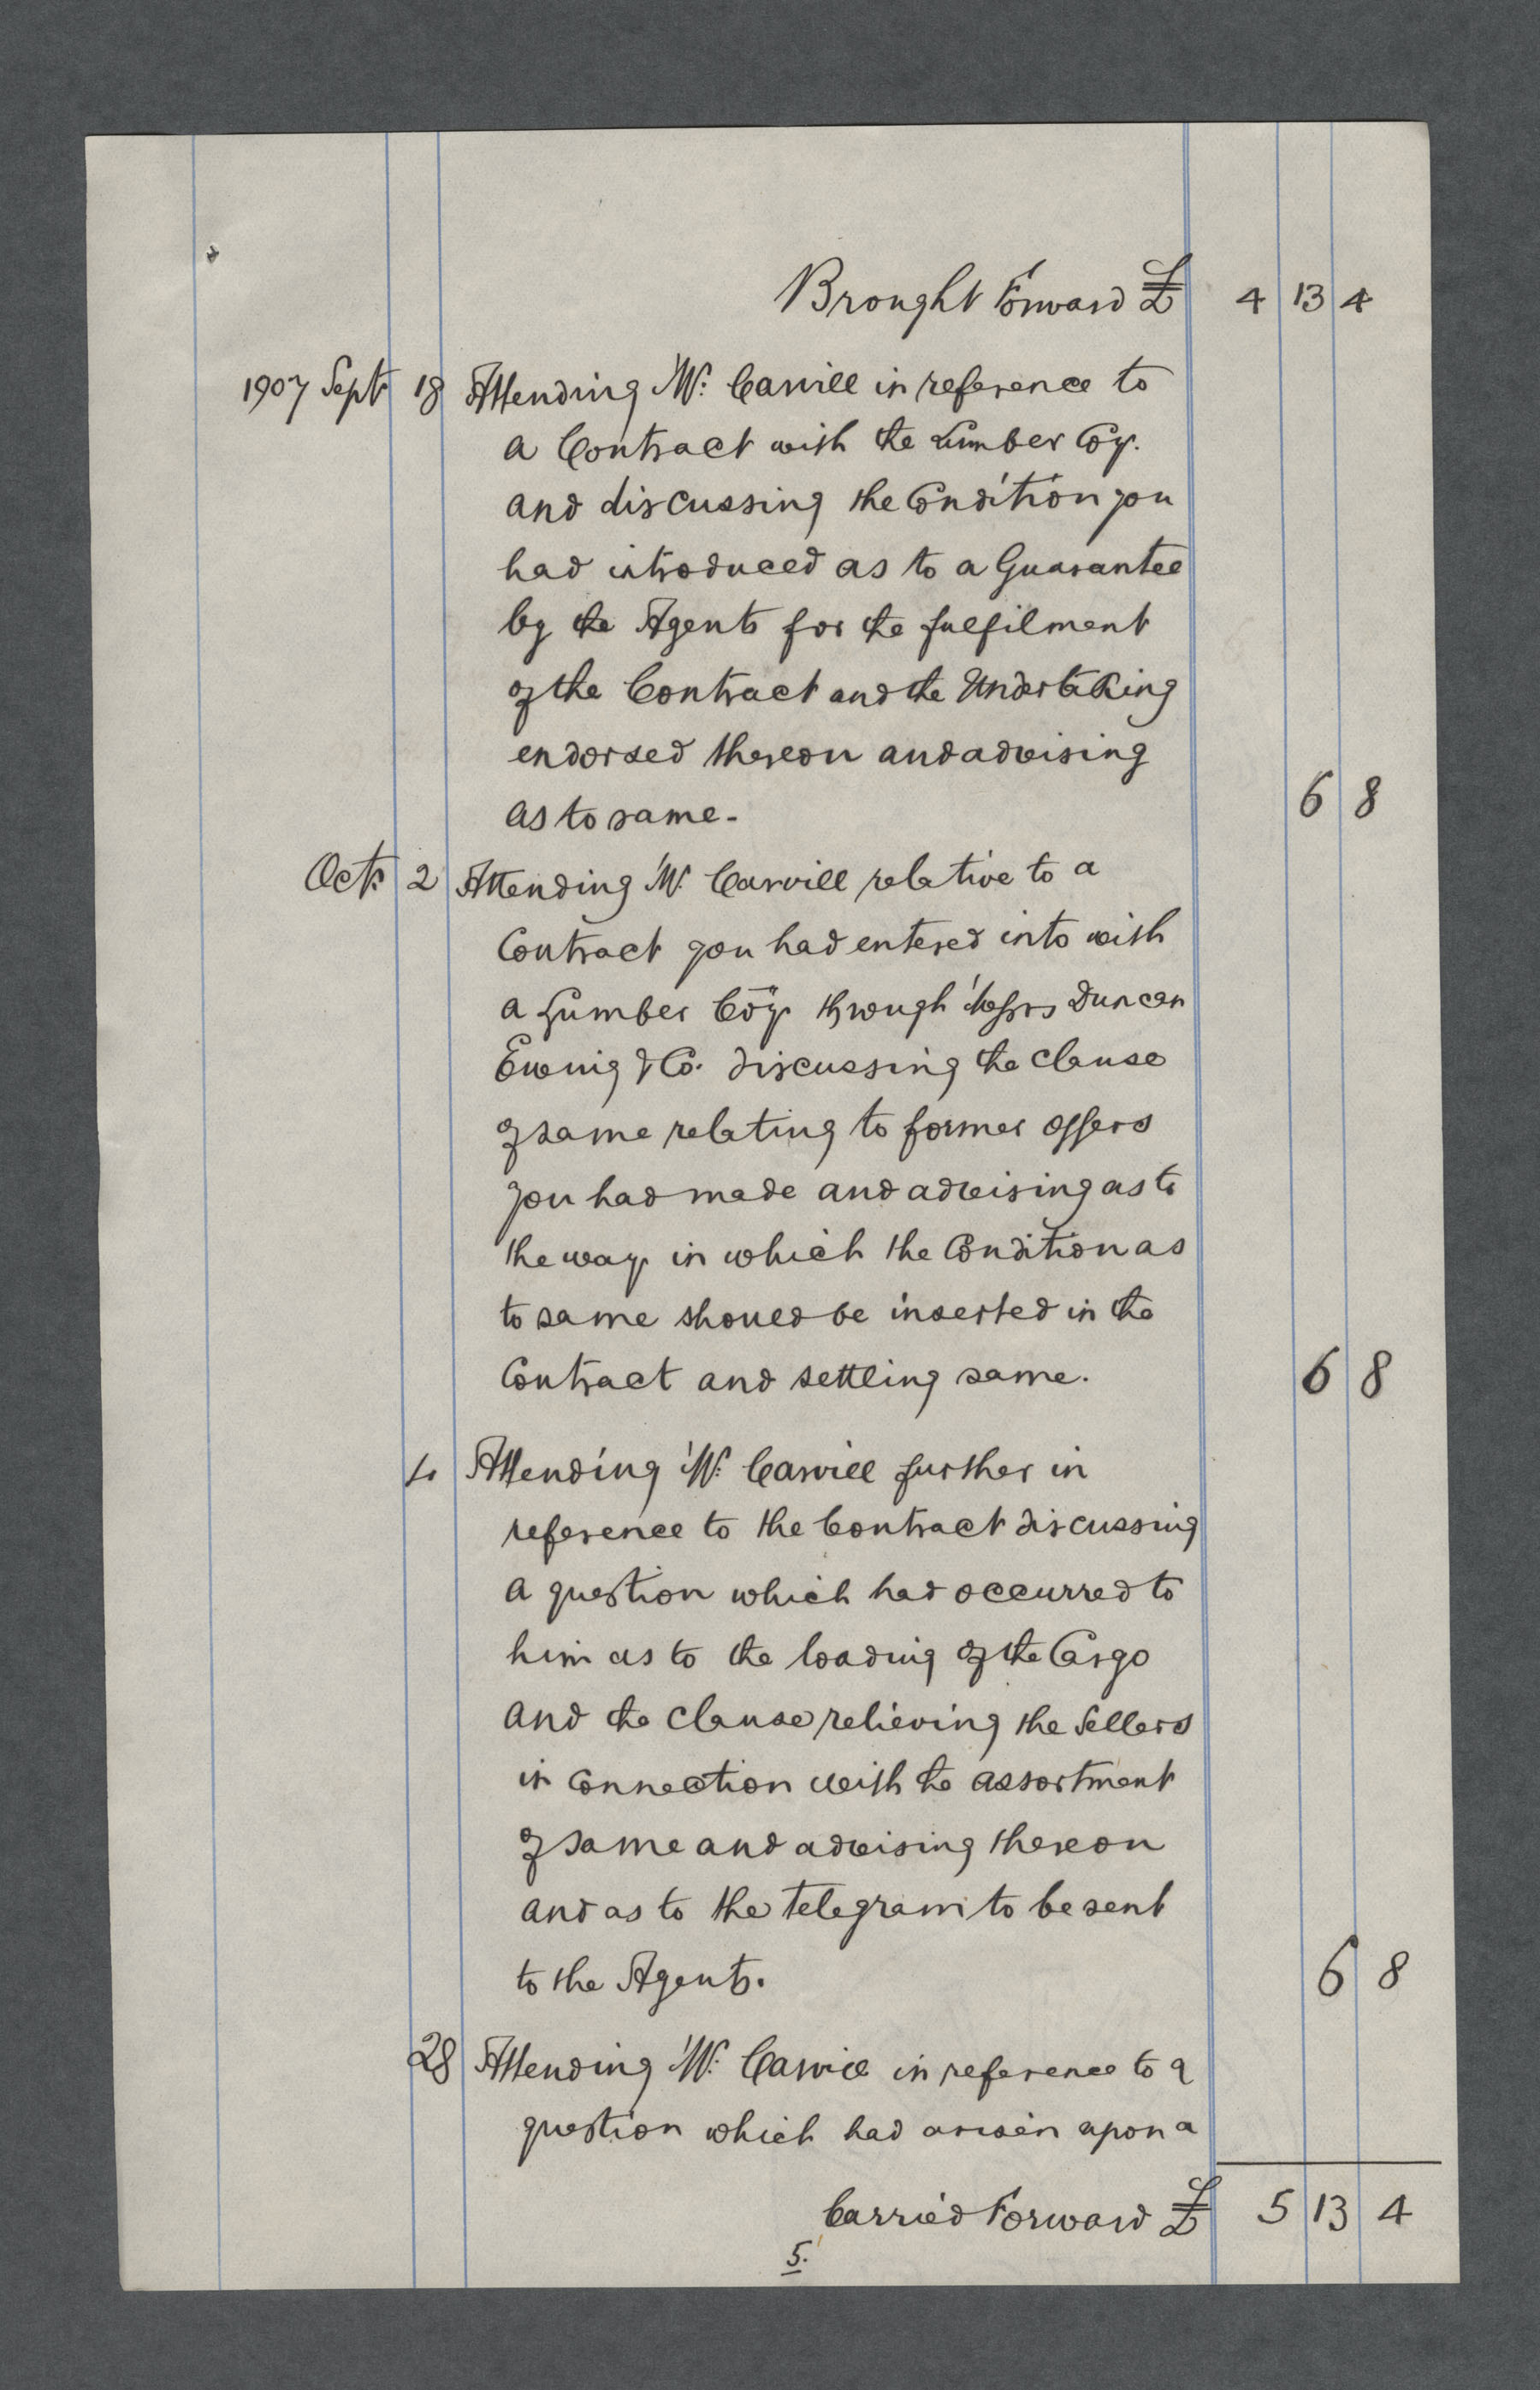 Brought Forward £ 4 13 4
1907 Sept 18 Attending Mr. Carvill in reference to
a Contract with the Lumber Coy.
and discussing the Condition you
had introduced as to a Guarantee
by the Agents for the fulfilment
of the Contract and the Undertaking
endorsed thereon and advising
as to same. 6 8
Oct. 2 Attending Mr. Carvill relative to a
Contract you had entered into with
a Lumber Coy. through Messrs Duncan
Ewing & Co. discussing the clause
of same relating to former offers
you had made and advising as to
the way in which the Condition as
to same should be inserted in the
Contract and settling same. 6 8
4 Attending Mr. Carvill further in
reference to the Contract discussing
a question which had occurred to
him as to the loading of the Cargo
and the clause relieving the Sellers
in connection with the assortment
of same and advising thereon
and as to the telegram to be sent
to the Agents. 6 8
28 Attending Mr. Carvill in reference to a
question which had arisen upon a
Carried Forward £ 5 13 4
5.